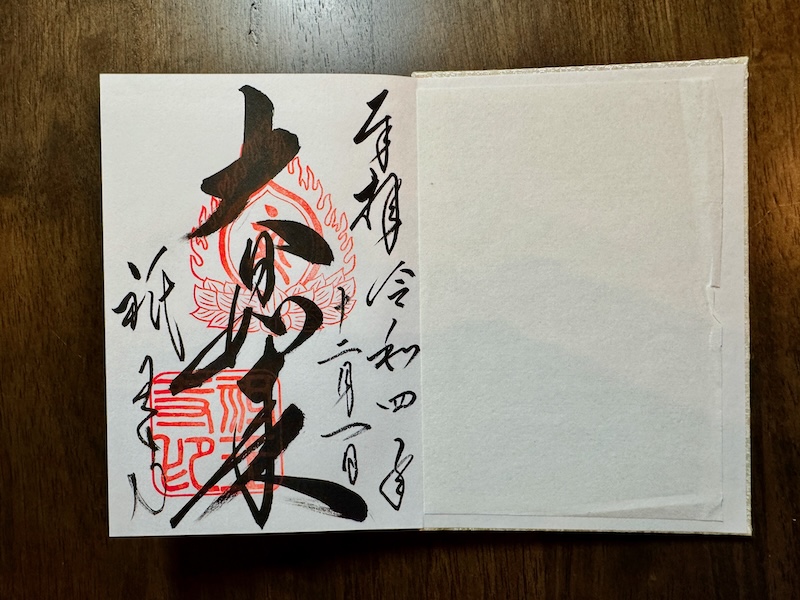 奉拝 令和四年
十二月一日
大日如来
祇王寺